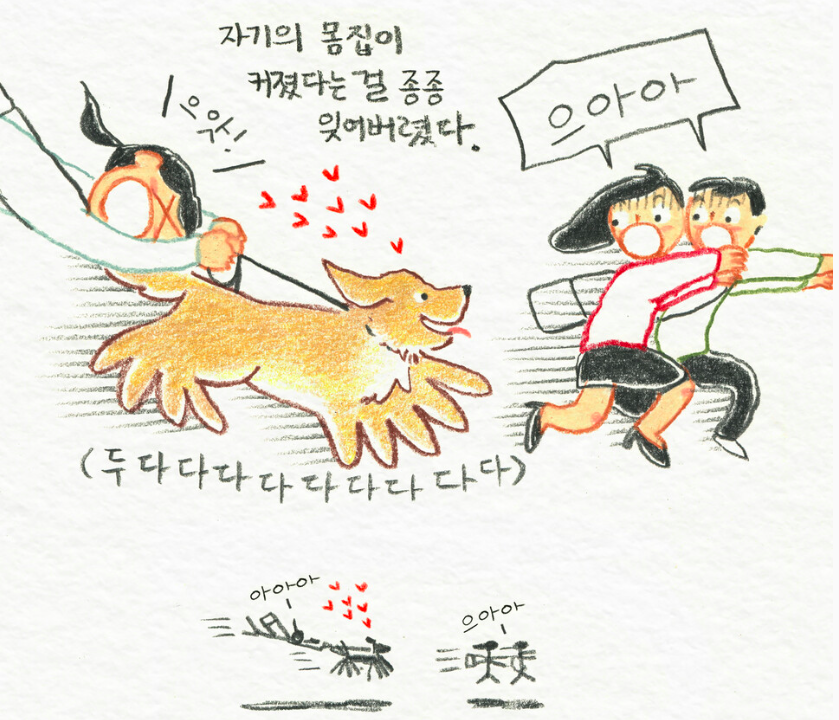 자기의 몸집이
커졌다는 걸 종종
잊어버렸다.
으우스!
으아아
(두다다다다다다다다다)
아아아
으아아